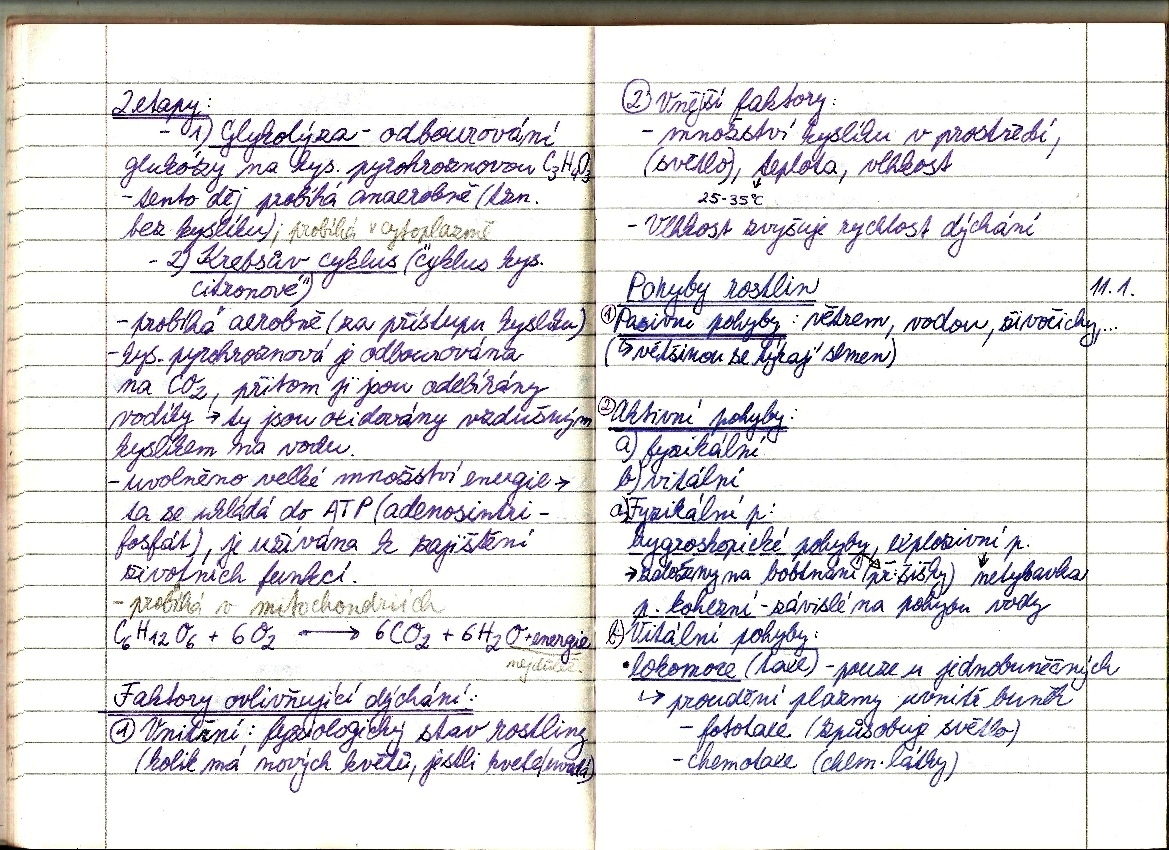 2 etapy:
- 1) Glykolýza - odbourování
glukózy na kys. pyrohroznovou C3H4O3
- tento děj probíhá anaerobně (tzn.
bez kyslíku); probíhá v cytoplazmě
- 2) Krebsův cyklus ("cyklus kys.
citronové")
- probíhá aerobně (za přístupu kyslíku)
- kys. pyrohroznová je odbourována
na CO2, přitom jí jsou odebírány
vodíky → ty jsou oxidovány vzdušným
kyslíkem na vodu.
- uvolněno velké množství energie →
ta se ukládá do ATP (adenosintri-
fosfát), je užívána k zajištění
životních funkcí.
- probíhá v mitochondriích
C6H12O6 + 6O2 → 6CO2 + 6H2O + energie
nejdůlež.
Faktory ovlivňující dýchání:
① Vnitřní: fyziologický stav rostliny
(kolik má nových květů, jestli kvete/uvadá)
② Vnější faktory:
- množství kyslíku v prostředí,
(světlo), teplota, vlhkost
25-35°C
- Vlhkost zvyšuje rychlost dýchání
Pohyby rostlin 11.1.
① Pasivní pohyby: větrem, vodou, živočichy,...
(↳ většinou se týkají semen)
② Aktivní pohyby:
a) fyzikální
b) vitální
a) Fyzikální p:
hygroskopické pohyby, explozivní p.
→ založeny na bobtnání (př: šišky) netykavka
p. kohezní - závislé na pohybu vody
b) Vitální pohyby:
• lokomoce (taxe) - pouze u jednobuněčných
↳ proudění plazmy uvnitř buněk
- fototaxe (způsobuje světlo)
- chemotaxe (chem. látky)